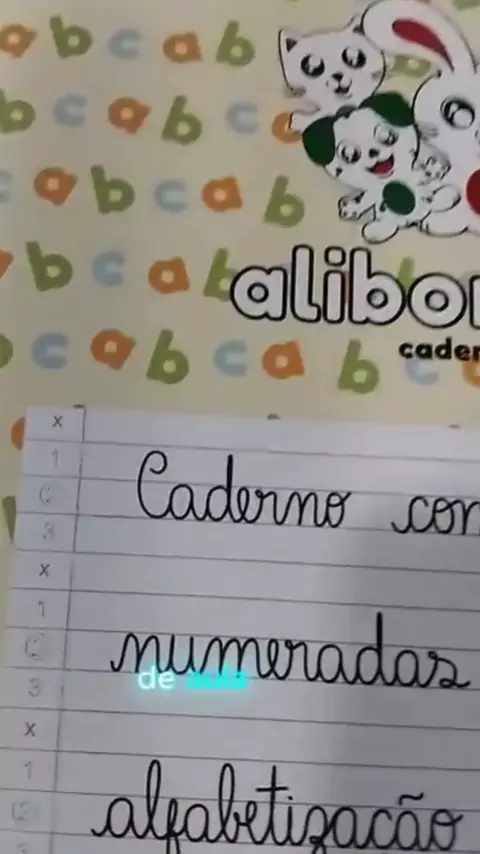 a b c a b
b c a b c
c a b c a b
b c a b
c a b c a b
alibo
cader
x
1
2 Caderno con
3
x
1
2 numeradas
3
de aula
x
1
2 alfabetização
3